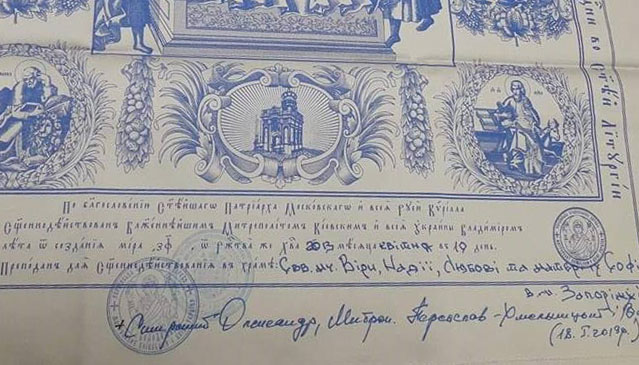 во Стѣй Літургіи
По благословенїи Стѣйшагѡ Патрїарха Московскагѡ и всеѧ Руси Кѷрїлла
Сщеннодѣйствован Блаженнѣйшимъ Митрополїтомъ Кїевскимъ и всеѧ Украины Владимїромъ
Лѣта ѿ созданїѧ мїра ѿ ржтва же Хва 2013 мѣсѧца квітня въ 19 день.
Преподан длѧ сщеннодѣйствованїѧ въ храмѣ: Свв. мч. Віри, Надії, Любові та матері Софі
в м. Запоріж
+ Смиренний Олександр, Митроп. Переяслав-Хмельницький і
(18.I.2019р.)